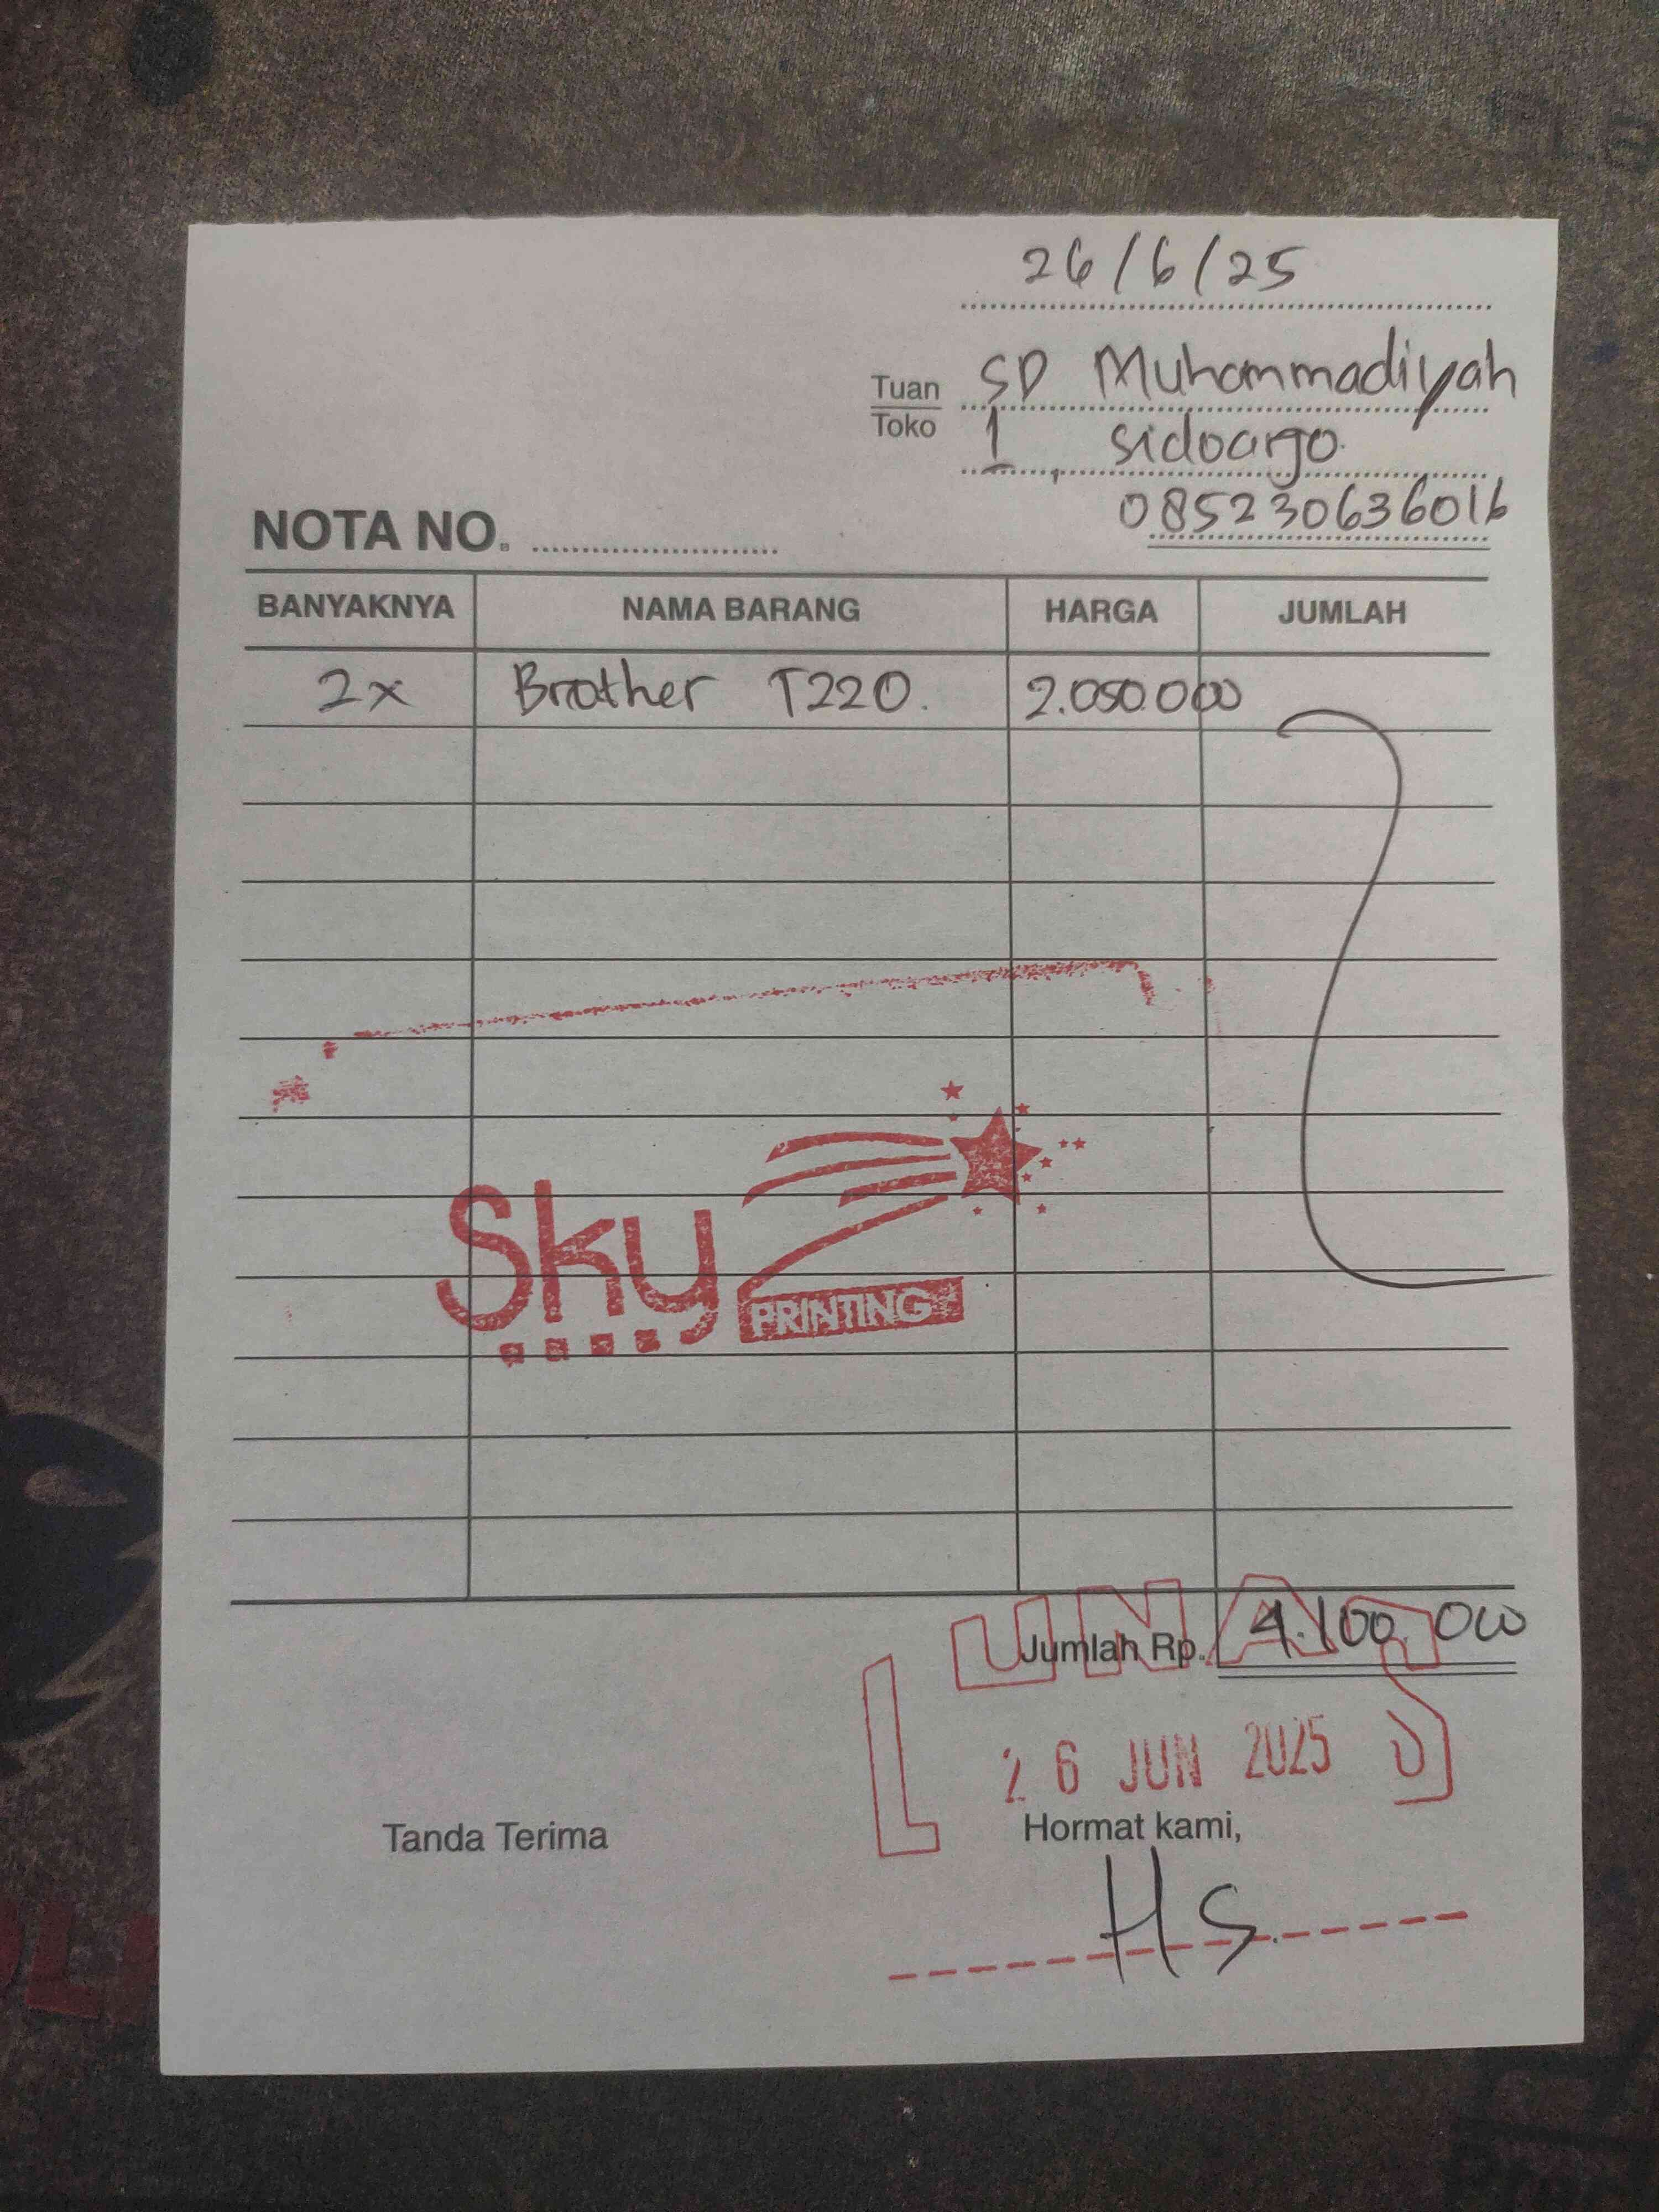 26/6/25
Tuan SD Muhammadiyah
Toko 1, Sidoarjo.
085230636016
NOTA NO.
BANYAKNYA NAMA BARANG HARGA JUMLAH
2x Brother T220. 2.050.000
Sky
PRINTING
LUNAS
Jumlah Rp. 4.100.000
26 JUN 2025
Tanda Terima Hormat kami,
HS.